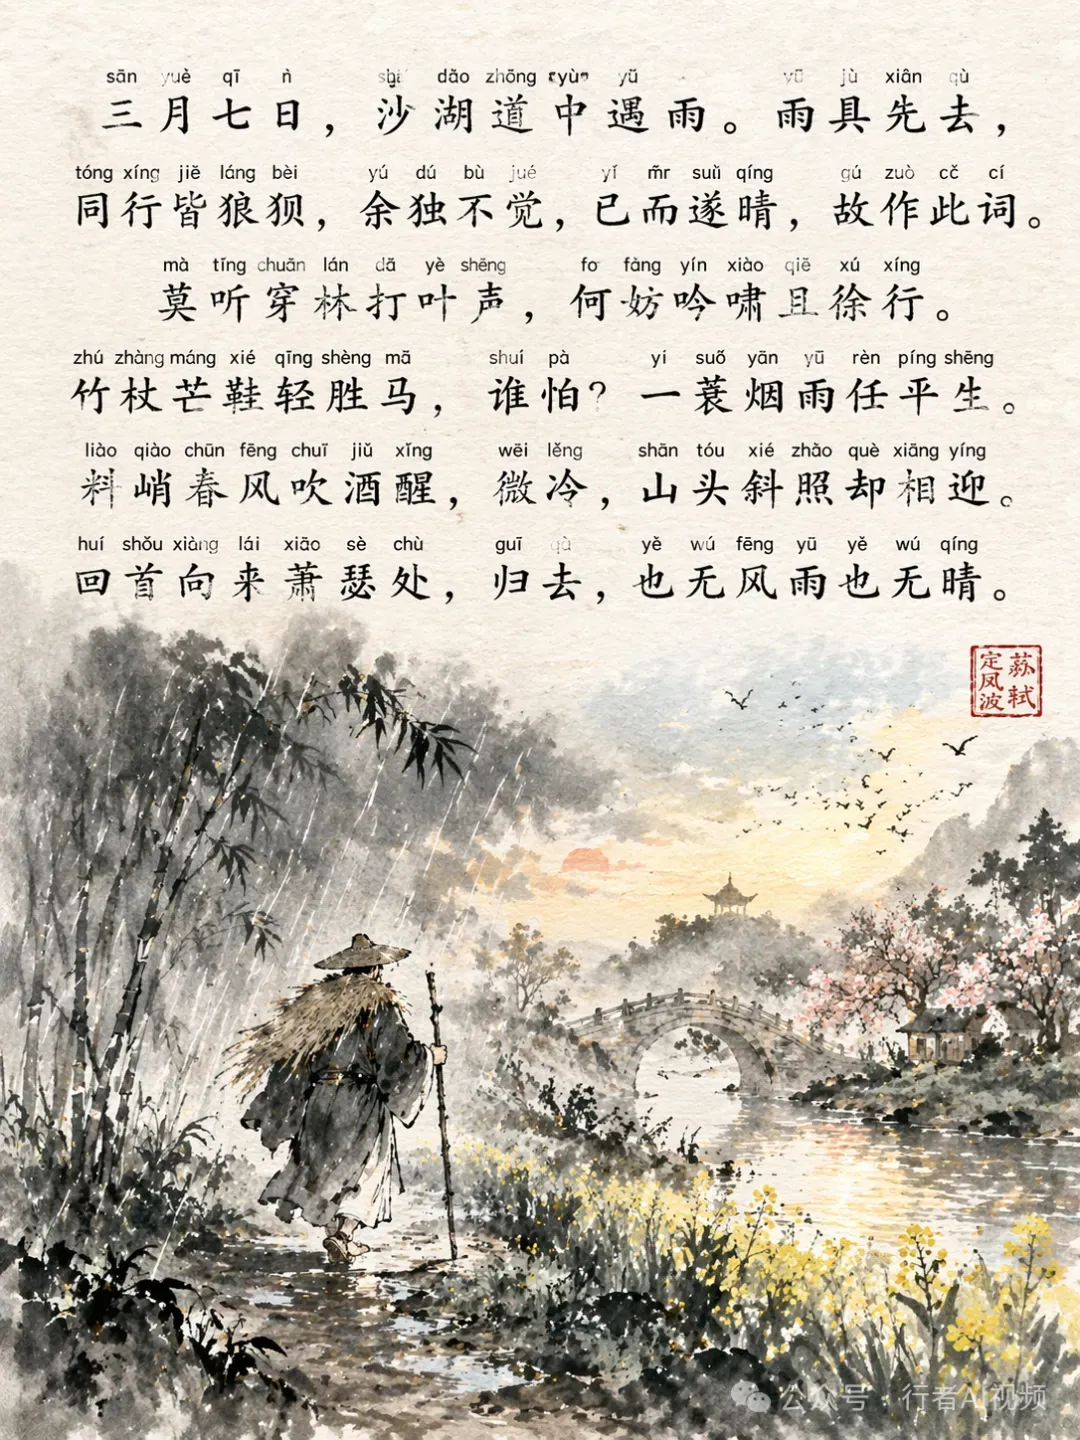 sān yuè qī dāo zhōng yù yǔ yǔ jù xiān qù
三月七日，沙湖道中遇雨。雨具先去，
tóng xíng jiě láng bèi yú dú bù jué yǐ suǐ qíng gú zuò cč cí
同行皆狼狈，余独不觉，已而遂晴，故作此词。
mà tīng chuān lán dǎ yè shēng fo fàng yín xiào qiě xú xíng
莫听穿林打叶声，何妨吟啸且徐行。
zhú zhàng máng xié qīng shèng mā shuí pà yi suō yān yū rèn píng shēng
竹杖芒鞋轻胜马，谁怕？一蓑烟雨任平生。
liào qiào chūn fēng chuī jiǔ xǐng wēi lěng shān tóu xié zhào què xiāng yíng
料峭春风吹酒醒，微冷，山头斜照却相迎。
huí shǒu xiàng lái xiāo sè chù guī yě wú fēng yǔ yě wú qíng
回首向来萧瑟处，归去，也无风雨也无晴。
苏轼
定风波
公众号 · 行者AI视频